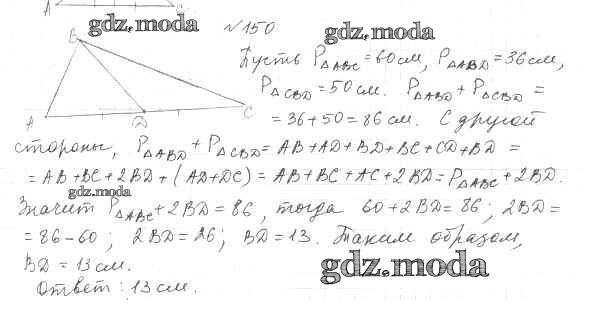 A C
gdz.moda
№150
gdz.moda
B
A
D
C
Пусть P△ABC = 60 см, P△ABD = 36 см,
P△CBD = 50 см. P△ABD + P△CBD =
= 36 + 50 = 86 см. С другой
стороны, P△ABD + P△CBD = AB + AD + BD + BC + CD + BD =
= AB + BC + 2BD + (AD + DC) = AB + BC + AC + 2BD = P△ABC + 2BD.
gdz.moda
Значит P△ABC + 2BD = 86, тогда 60 + 2BD = 86; 2BD =
= 86 - 60; 2BD = 26; BD = 13. Таким образом,
BD = 13 см.
gdz.moda
Ответ: 13 см.